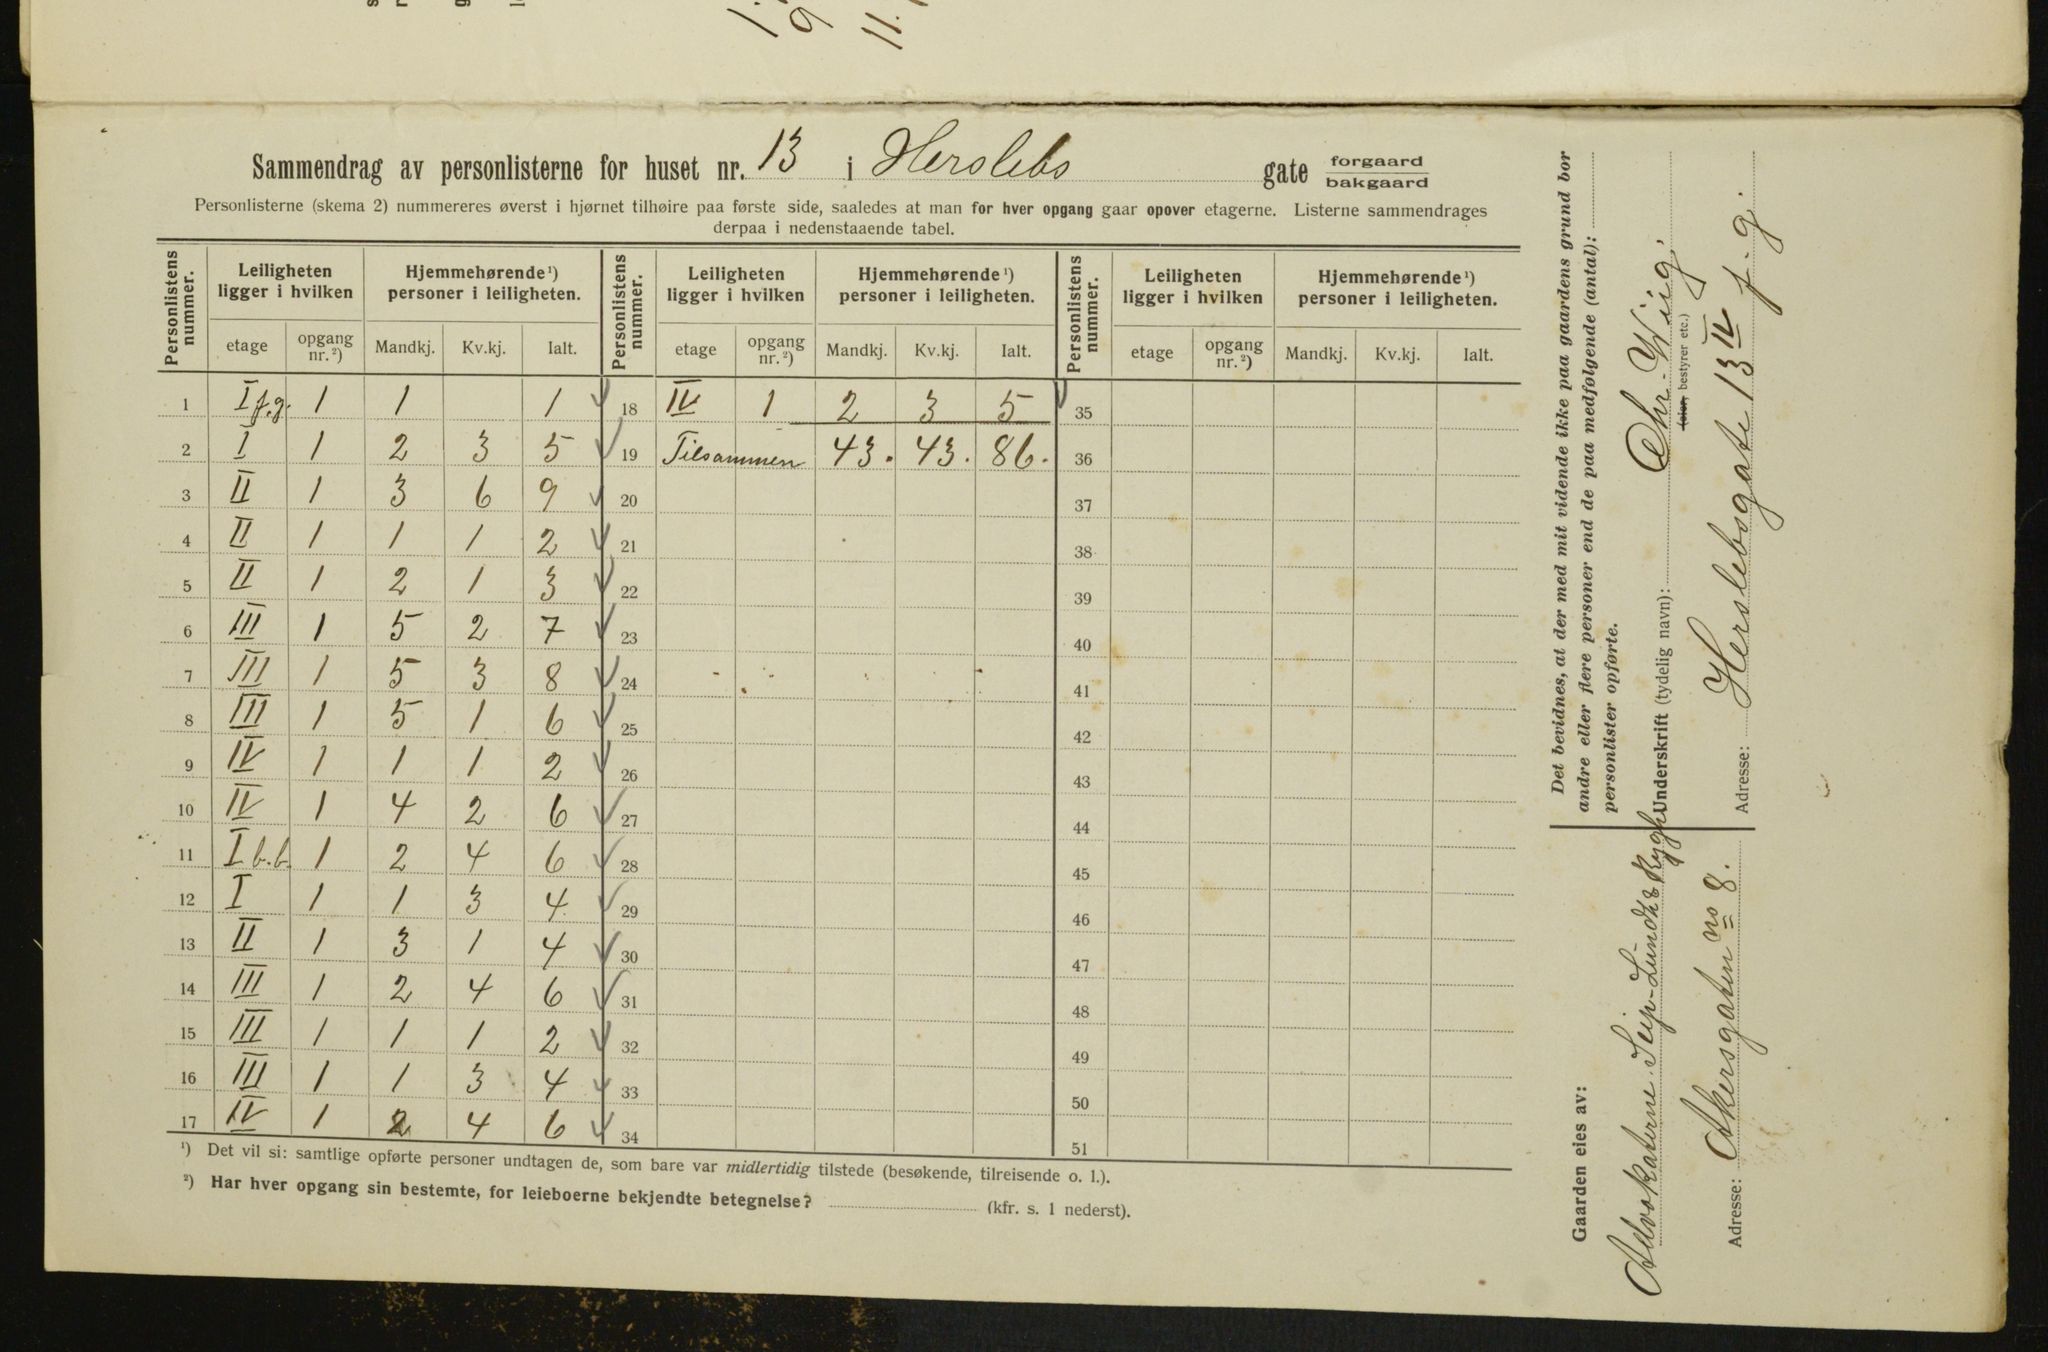 Sammendrag av personlisterne for huset nr. 13 i Herslebs gate forgaard / bakgaard
Personlisterne (skema 2) nummereres øverst i hjørnet tilhøire paa første side, saaledes at man for hver opgang gaar opover etagerne. Listerne sammendrages
derpaa i nedenstaaende tabel.
Personlistens nummer. | Leiligheten ligger i hvilken | Hjemmehørende¹) personer i leiligheten. | Personlistens nummer. | Leiligheten ligger i hvilken | Hjemmehørende¹) personer i leiligheten. | Personlistens nummer. | Leiligheten ligger i hvilken | Hjemmehørende¹) personer i leiligheten.
etage | opgang nr.²) | Mandkj. | Kv.kj. | Ialt. | etage | opgang nr.²) | Mandkj. | Kv.kj. | Ialt. | etage | opgang nr.²) | Mandkj. | Kv.kj. | Ialt.
1 | I f.g. | 1 | 1 | | 1 | 18 | IV | 1 | 2 | 3 | 5 | 35
2 | I | 1 | 2 | 3 | 5 | 19 | Tilsammen | 43. | 43. | 86. | 36
3 | II | 1 | 3 | 6 | 9 | 20 | 37
4 | II | 1 | 1 | 1 | 2 | 21 | 38
5 | II | 1 | 2 | 1 | 3 | 22 | 39
6 | III | 1 | 5 | 2 | 7 | 23 | 40
7 | III | 1 | 5 | 3 | 8 | 24 | 41
8 | III | 1 | 5 | 1 | 6 | 25 | 42
9 | IV | 1 | 1 | 1 | 2 | 26 | 43
10 | IV | 1 | 4 | 2 | 6 | 27 | 44
11 | I b.b. | 1 | 2 | 4 | 6 | 28 | 45
12 | I | 1 | 1 | 3 | 4 | 29 | 46
13 | II | 1 | 3 | 1 | 4 | 30 | 47
14 | III | 1 | 2 | 4 | 6 | 31 | 48
15 | III | 1 | 1 | 1 | 2 | 32 | 49
16 | III | 1 | 1 | 3 | 4 | 33 | 50
17 | IV | 1 | 2 | 4 | 6 | 34 | 51
¹) Det vil si: samtlige opførte personer undtagen de, som bare var midlertidig tilstede (besøkende, tilreisende o. l.).
²) Har hver opgang sin bestemte, for leieboerne bekjendte betegnelse? (kfr. s. 1 nederst).
Det bevidnes, at der med mit vidende ikke paa gaardens grund bor
andre eller flere personer end de paa medfølgende (antal):
personlister opførte.
Underskrift (tydelig navn): Chr. Wiig.
(eier, bestyrer etc.)
Adresse: Herslebsgate 13 IV f. g.
Gaarden eies av:
Advokaterne Seip-Lundh & Rygh
Adresse: Akersgaten no 8.